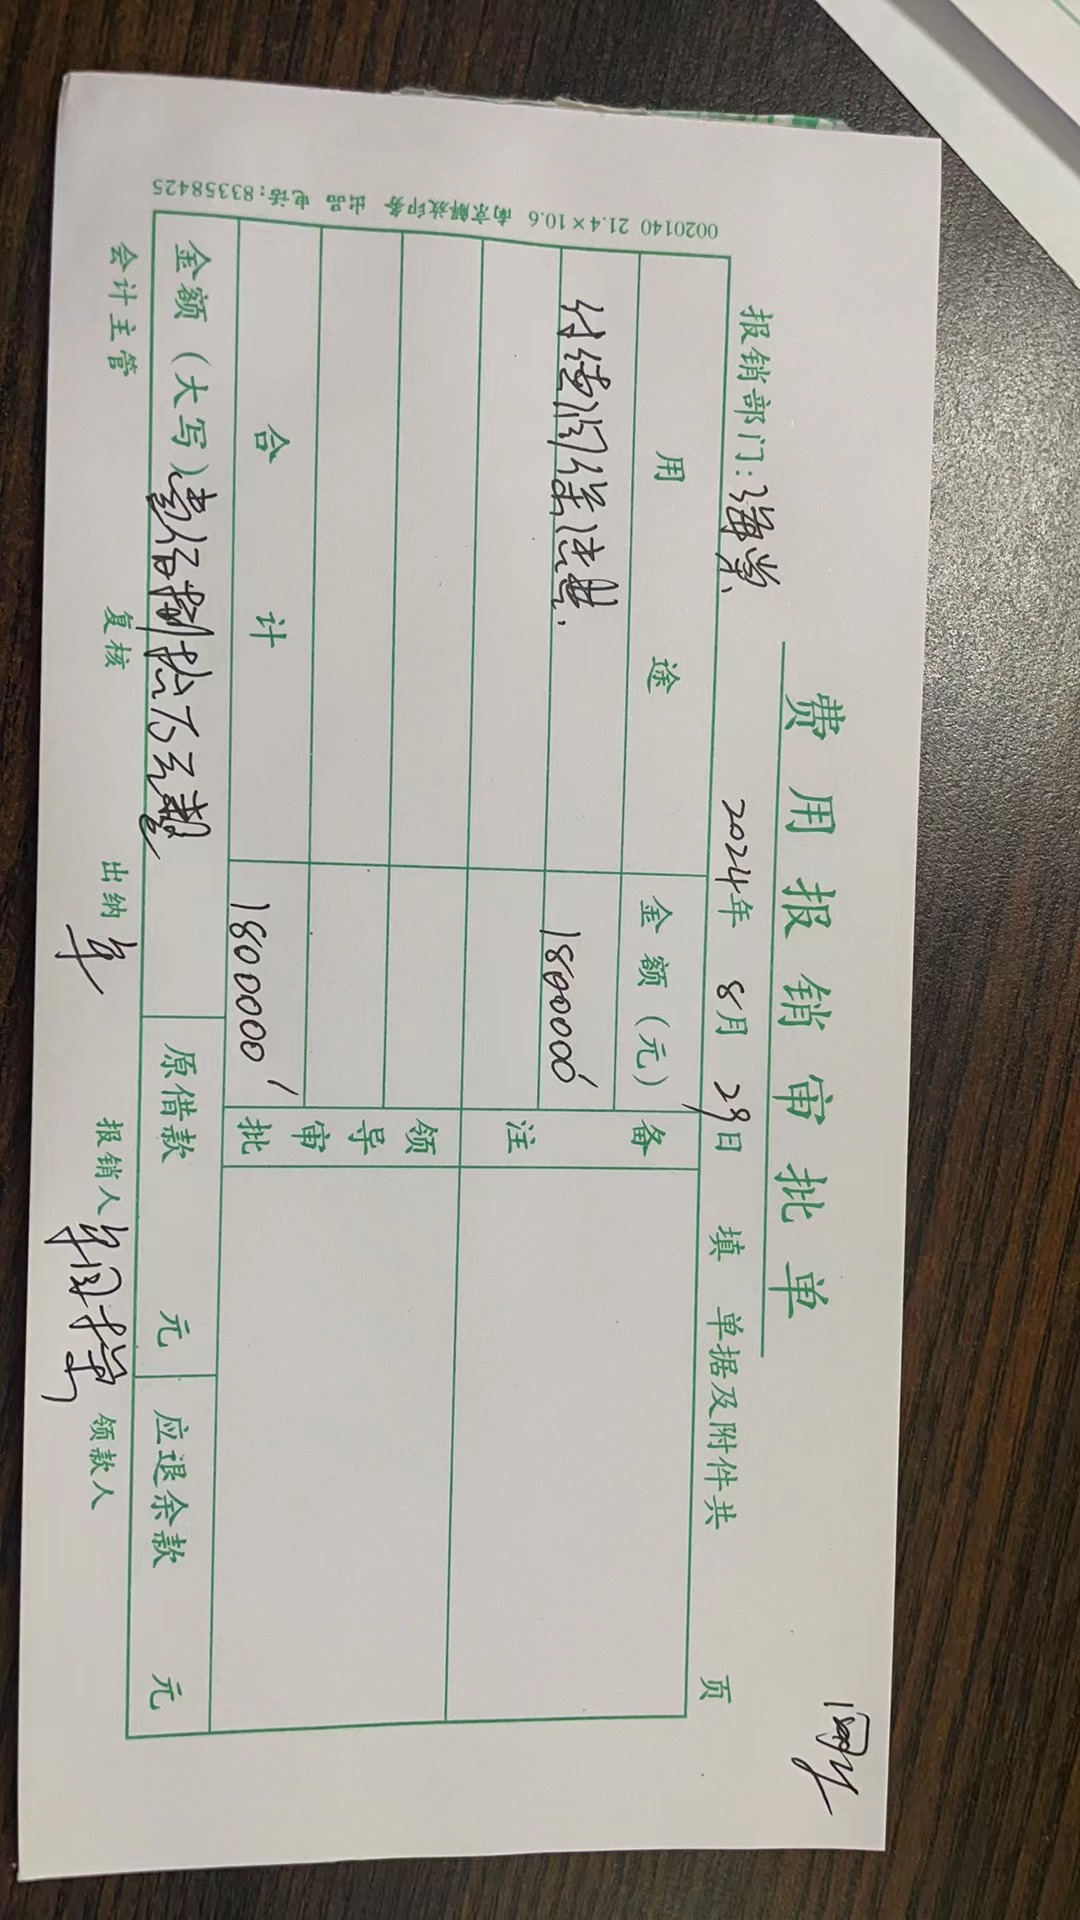 费用报销审批单
报销部门:海棠 2024年 8月 29日 填 单据及附件共 页
用途 金额(元) 备注
付德润保洁费. 1800000
领导审批
合计 1800000
金额(大写)壹佰捌拾万元整 原借款 元 应退余款 元
会计主管 复核 出纳 报销人 领款人
0020140 21.4×10.6 南京解放印务 出品 电话:83358425